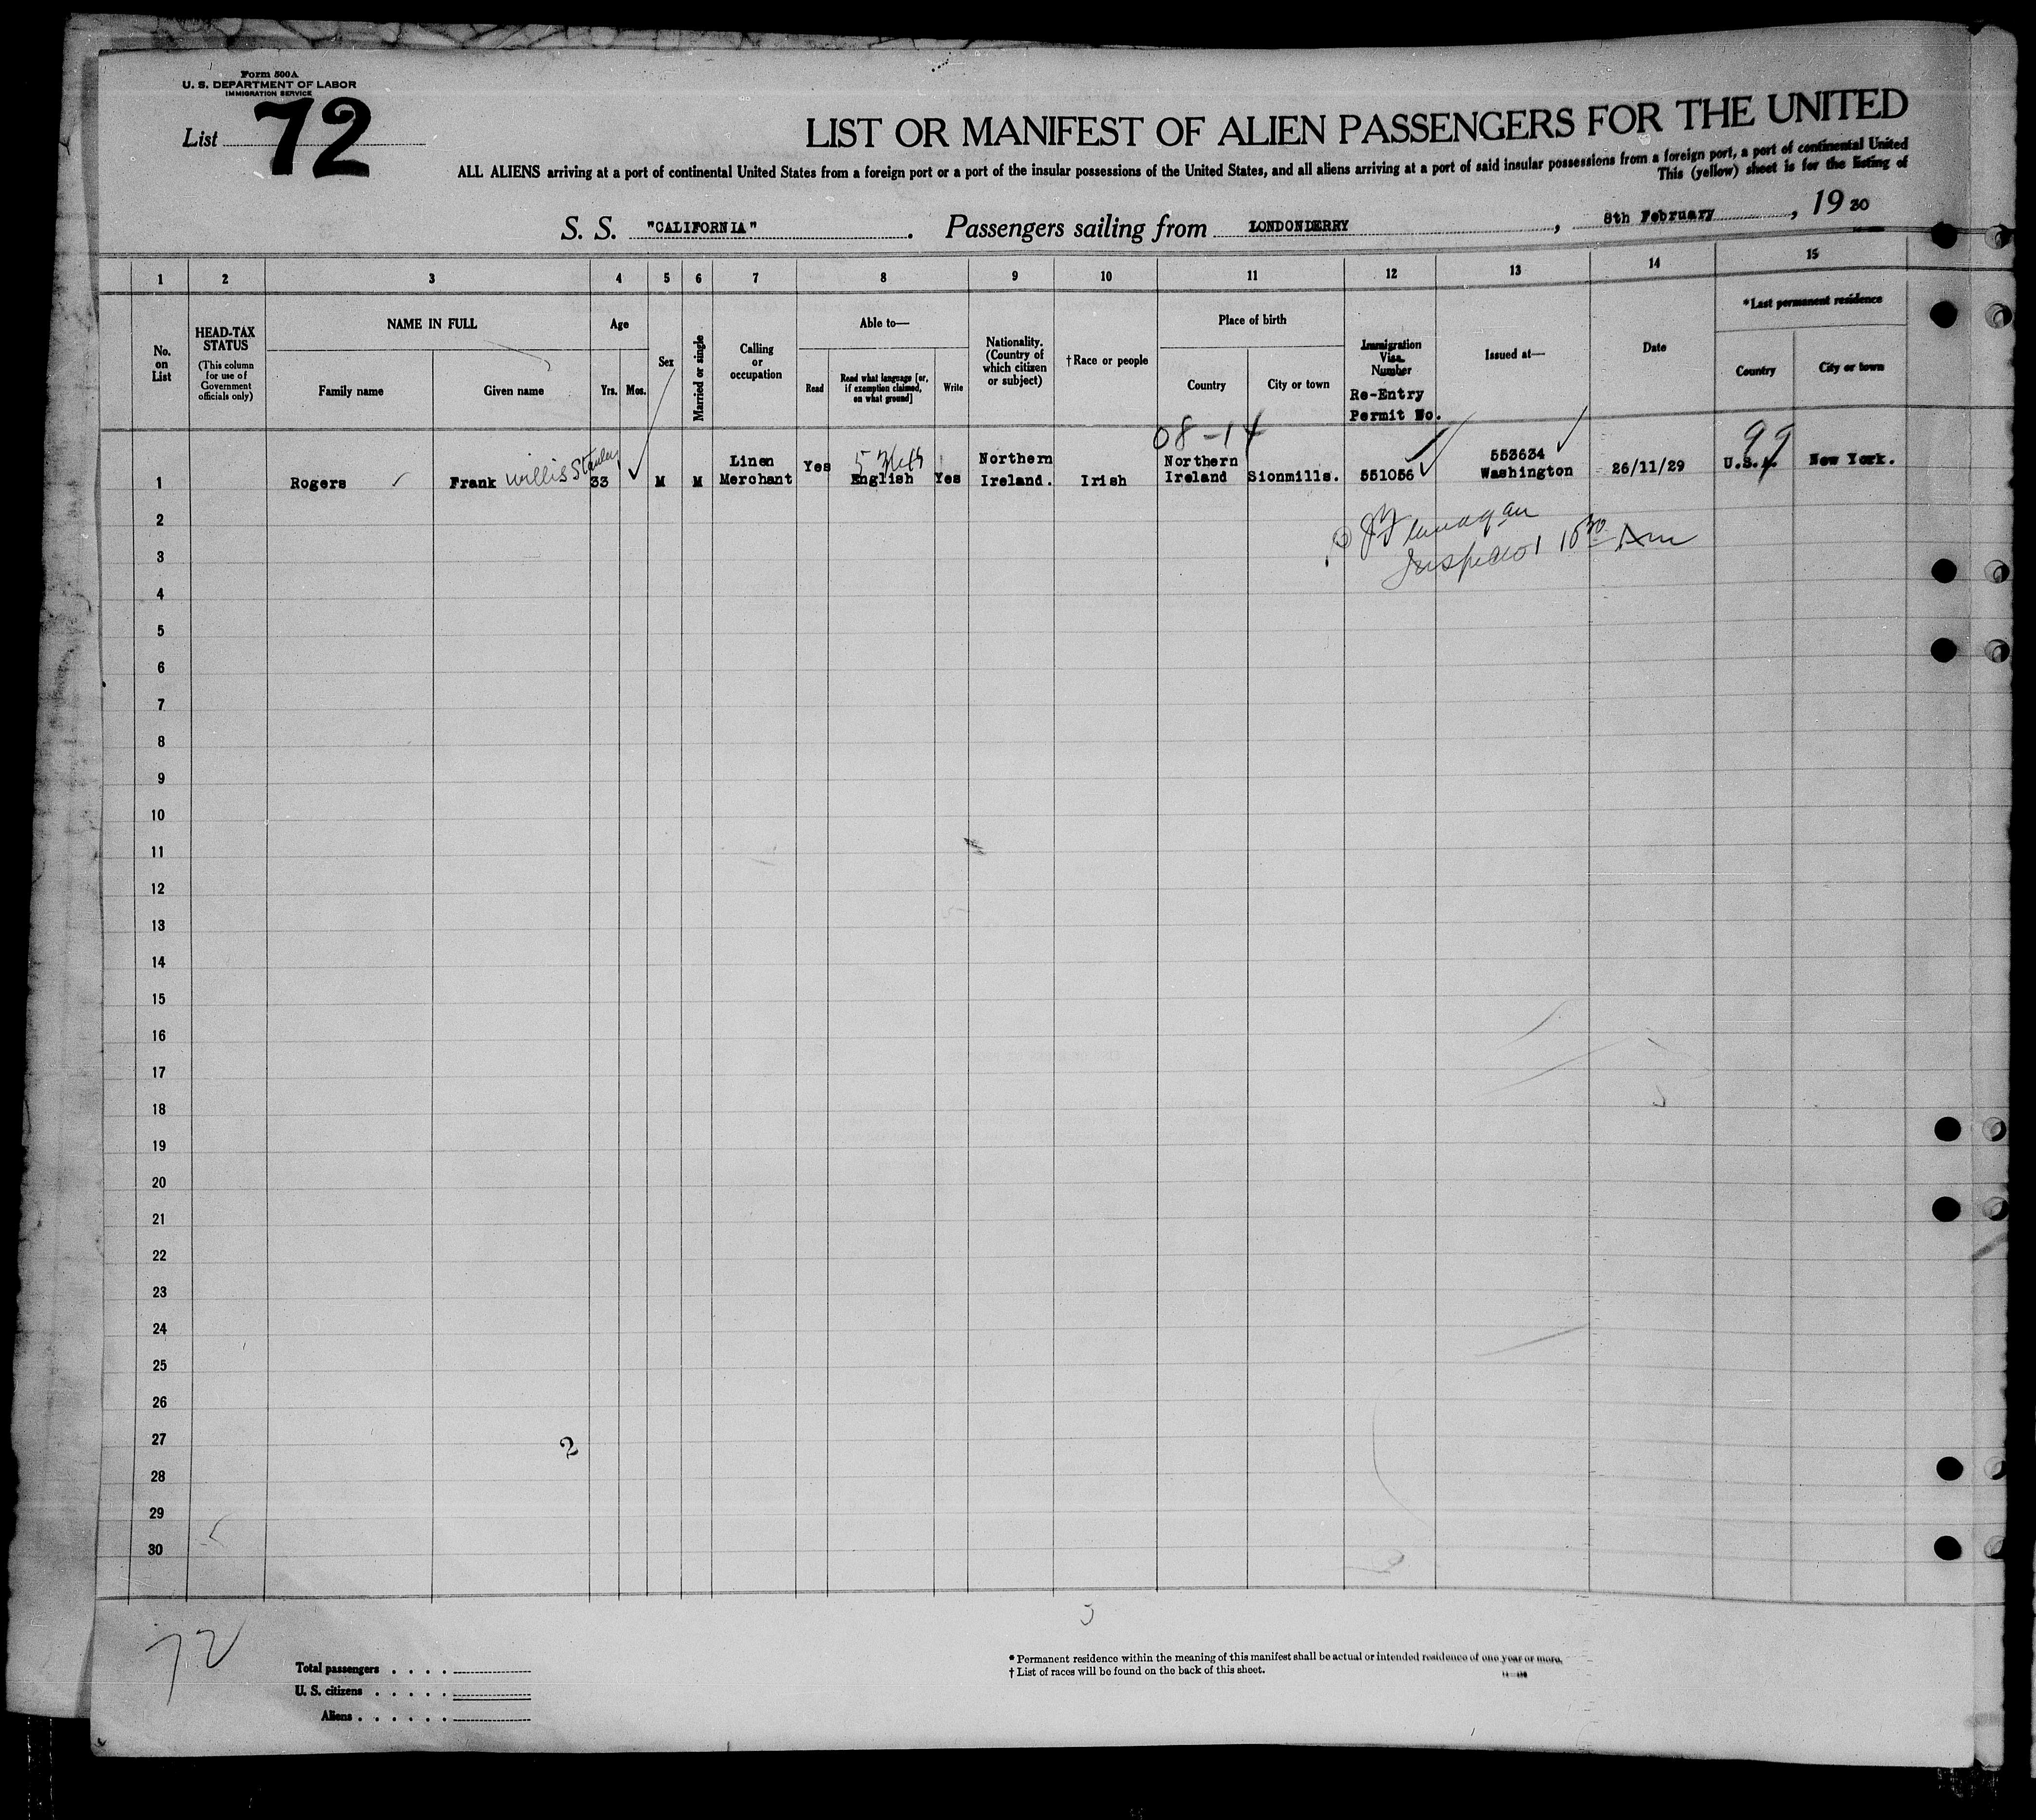 Form 500A
U. S. DEPARTMENT OF LABOR
IMMIGRATION SERVICE
List 72
LIST OR MANIFEST OF ALIEN PASSENGERS FOR THE UNITED
ALL ALIENS arriving at a port of continental United States from a foreign port or a port of the insular possessions of the United States, and all aliens arriving at a port of said insular possessions from a foreign port, a port of continental United
This (yellow) sheet is for the listing of
S. S. "CALIFORNIA". Passengers sailing from LONDONDERRY, 8th February, 1930
1 2 3 4 5 6 7 8 9 10 11 12 13 14 15
No. on List
HEAD-TAX STATUS
(This column for use of Government officials only)
NAME IN FULL
Family name
Given name
Age
Yrs. Mos.
Sex
Married or single
Calling or occupation
Able to—
Read
Read what language [or, if exemption claimed, on what ground]
Write
Nationality. (Country of which citizen or subject)
†Race or people
Place of birth
Country
City or town
Immigration Visa Number
Re-Entry Permit No.
Issued at—
Date
*Last permanent residence
Country
City or town
08-14
99
1 Rogers Frank Willis Stanley 33 M M Linen Merchant Yes English Yes Northern Ireland. Irish Northern Ireland Sionmills. 551056 553634 Washington 26/11/29 U.S.A. New York.
2
J Flannagan
3
Inspector 10 30 Am
4
5
6
7
8
9
10
11
12
13
14
15
16
17
18
19
20
21
22
23
24
25
26
27
2
28
29
30
72
Total passengers . . . .
U. S. citizens . . . . .
Aliens . . . . . .
* Permanent residence within the meaning of this manifest shall be actual or intended residence of one year or more.
† List of races will be found on the back of this sheet.